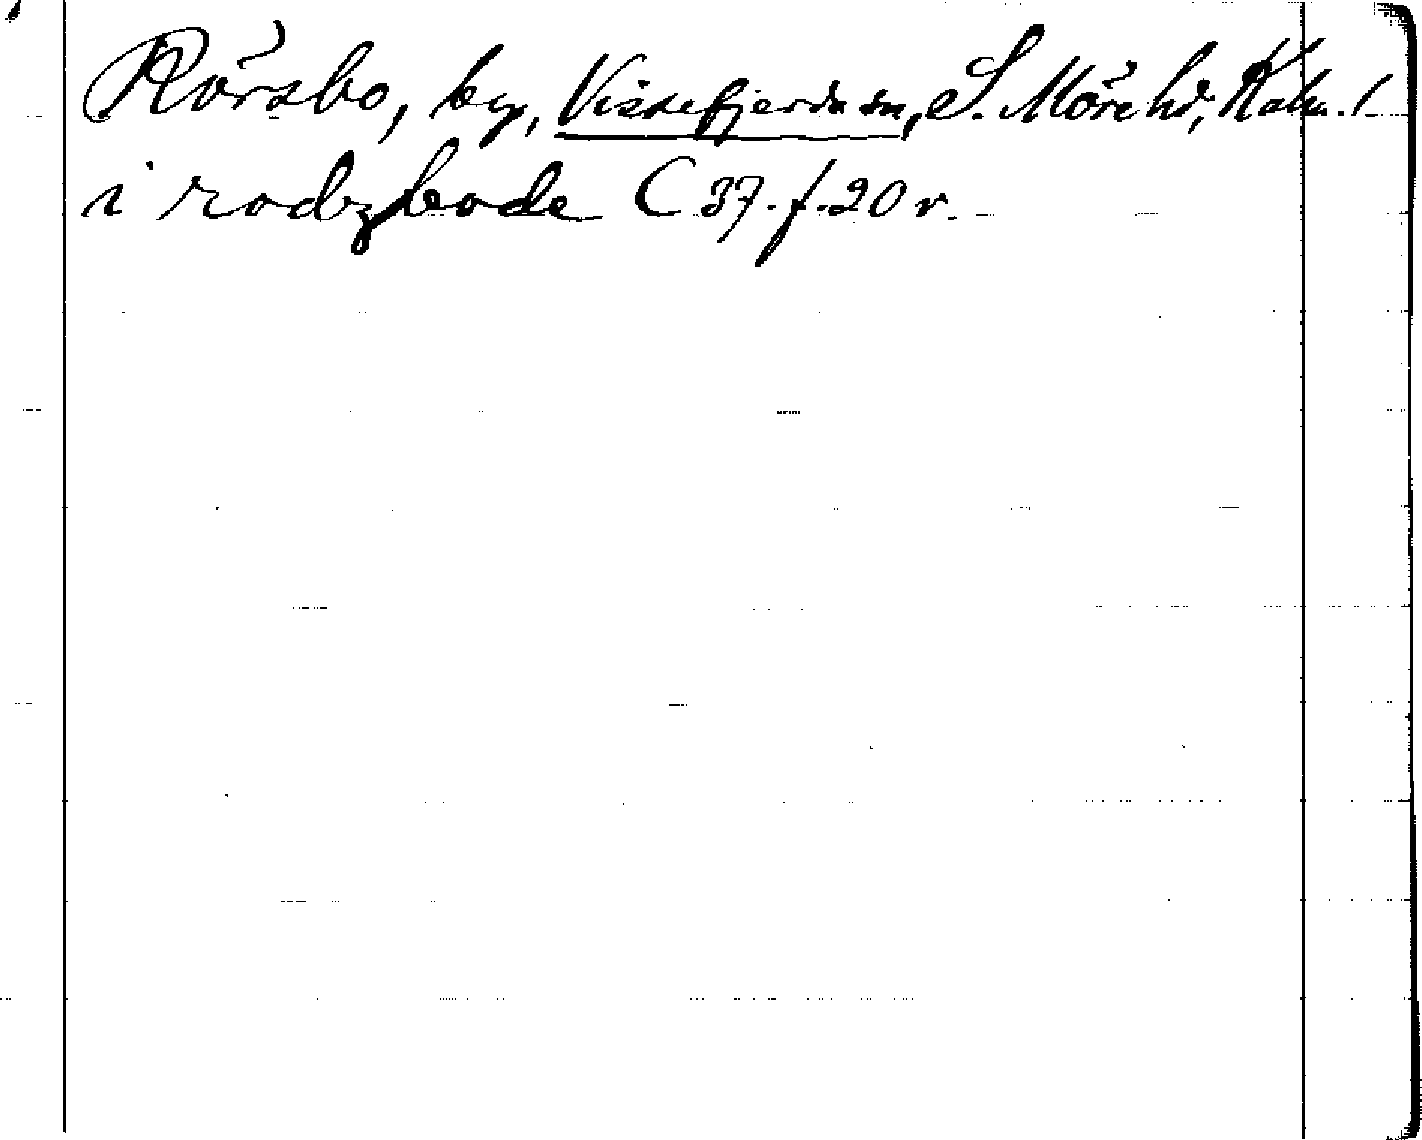 Rörsbo, by, Vissefjerda sn, S. Möre hd, Kalm. l.
i rodzbode C 37. f. 20 r.